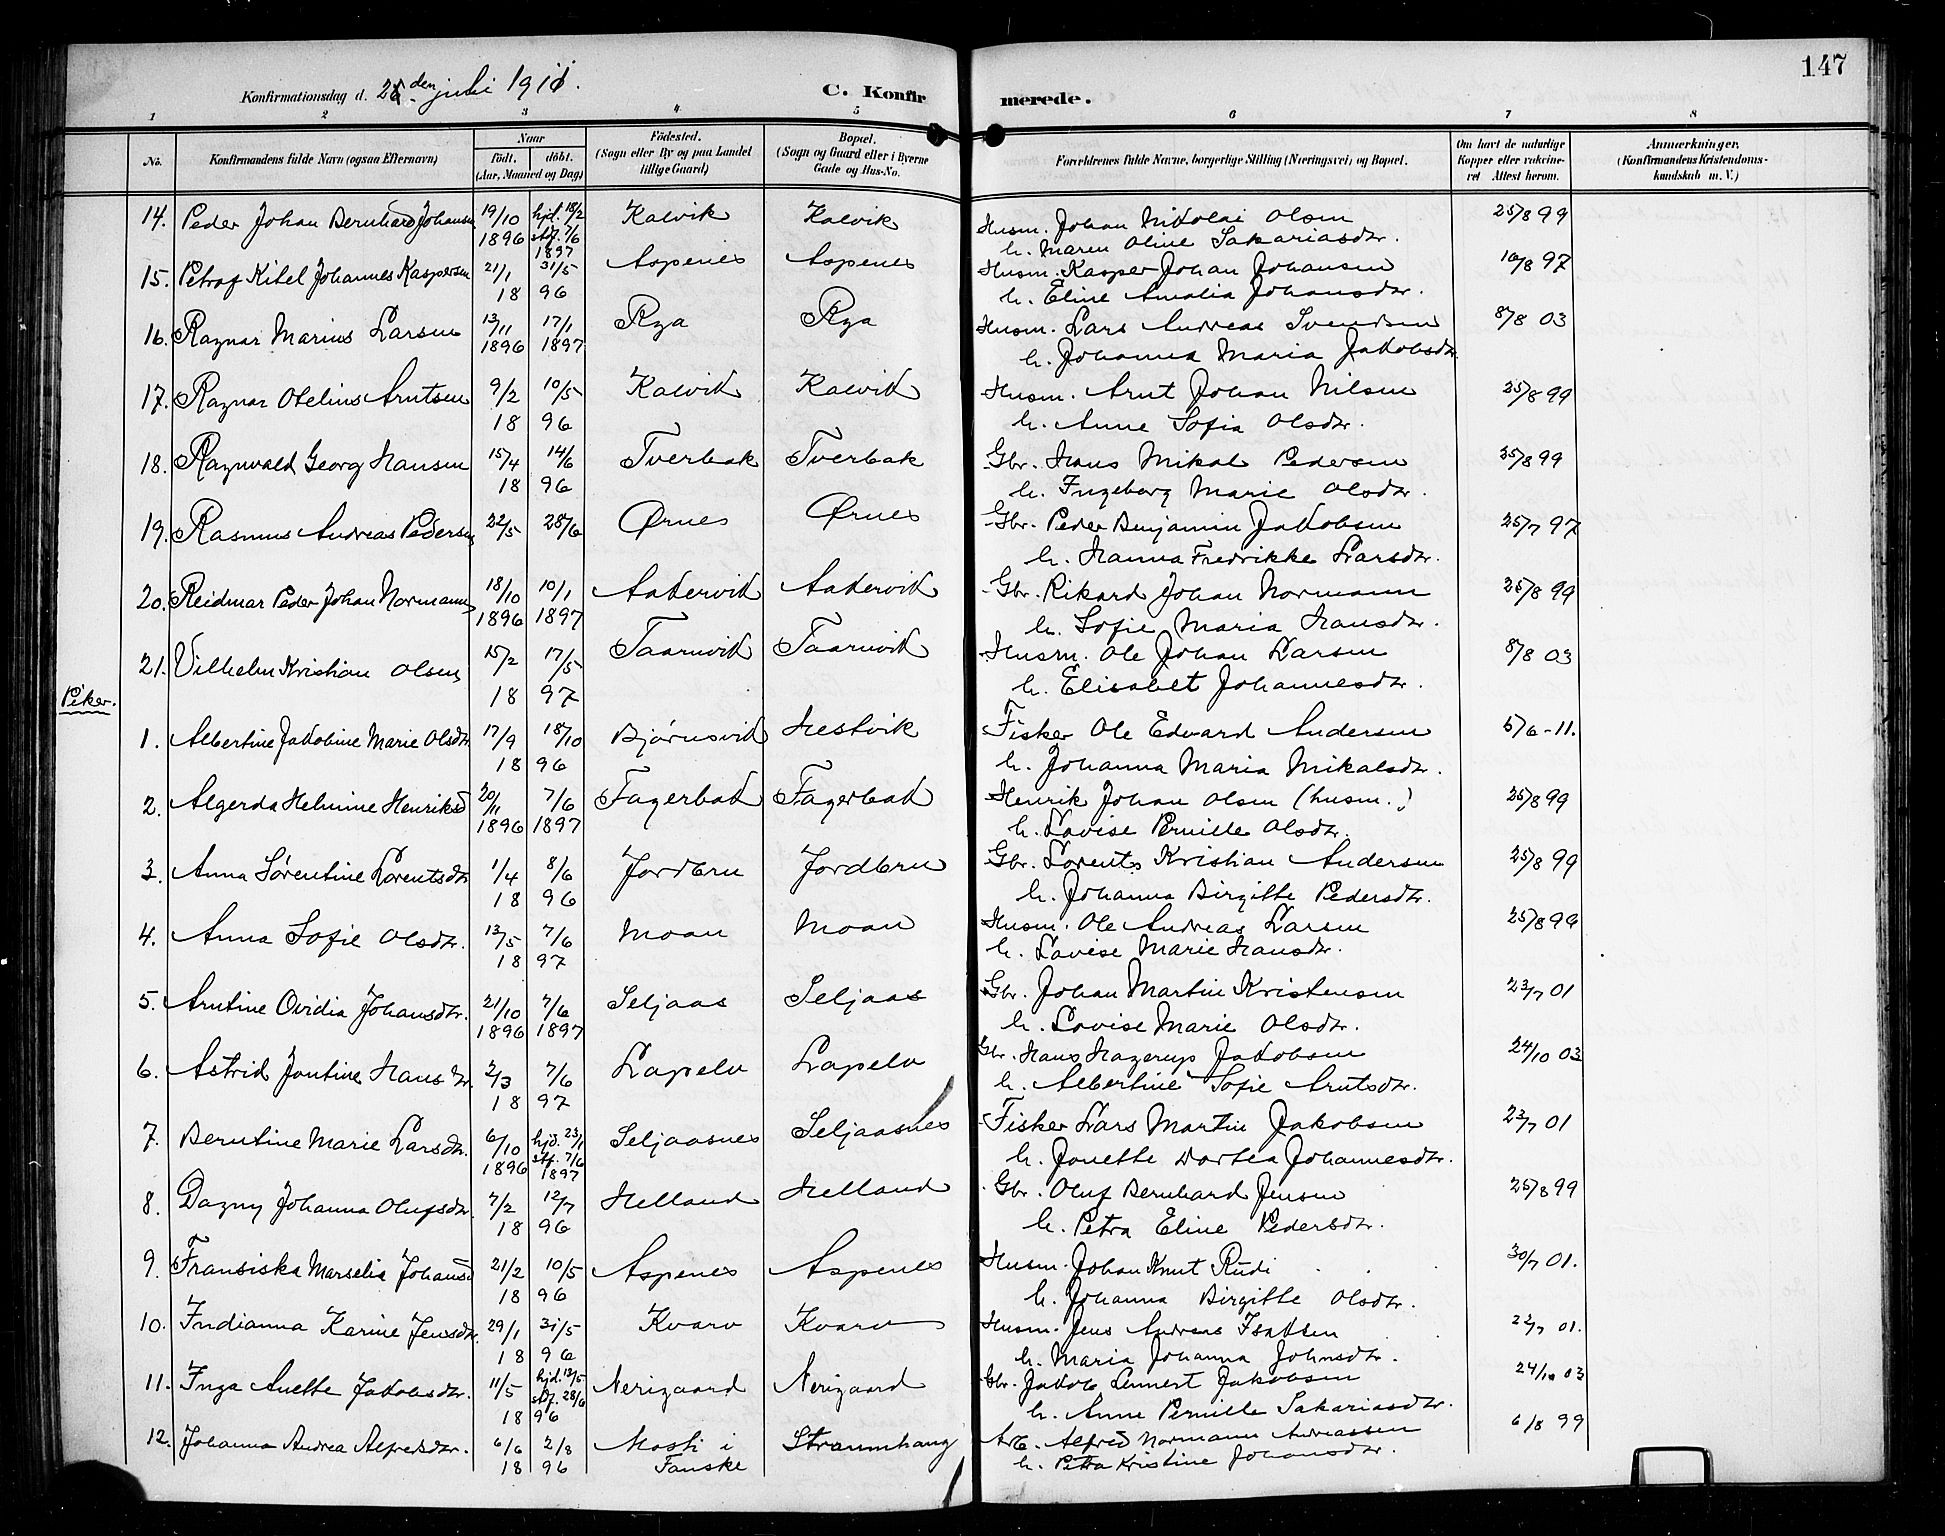 147
Konfirmationsdag d. 25. den juli 1911.
C. Konfirmerede.
1 2 3 4 5 6 7 8
No. Konfirmandens fulde Navn (ogsaa Efternavn) Naar født. døbt. (Aar, Maaned og Dag) Fødested. (Sogn eller By og paa Landet tillige Gaard) Bopæl. (Sogn og Gaard eller i Byerne Gade og Hus-No. Forældrenes fulde Navne, borgerlige Stilling (Næringsvei) og Bopæl. Om havt de naturlige Kopper eller vaccineret Attest herom. Anmærkninger. (Konfirmandens Kristendomskundskab m. V.)
14. Peder Johan Bernhard Johansen 19/10 1896 hjd. 18/2 stf. 7/6 1897 Kalvik Kalvik Husm. Johan Nikolai Olsen 25/8 99
h. Maren Oline Sakariasdtr.
15. Petrof Kitel Johannes Kaspersen 21/1 31/5 Aspenes Aspenes Husm. Kasper Johan Johansen 16/8 97
18 96 h. Eline Amalia Johansdtr.
16. Ragnar Marius Larsen 13/11 17/1 Rya Rya Husm. Lars Andreas Svendsen 8/8 03
1896 1897 h. Johanna Maria Jakobsdtr.
17. Ragnar Otelius Arntsen 9/2 10/5 Kalvik Kalvik Husm. Arnt Johan Nilsen 25/8 99
18 96 h. Anne Sofia Olsdtr.
18. Ragnvald Georg Hansen 15/4 14/6 Tverbak Tverbak Gbr. Hans Mikal Pedersen 25/8 99
18 96 h. Ingeborg Marie Olsdtr.
19. Rasmus Andreas Pedersen 22/5 28/6 Ørnes Ørnes Gbr. Peder Benjamin Jakobsen 25/7 97
h. Hanna Fredrikke Larsdtr.
20. Reidmar Peder Johan Normann 18/10 10/1 Aakervik Aakervik Gbr. Rikard Johan Normann 25/8 99
1896 1897 h. Sofie Maria Hansdtr.
21. Vilhelm Kristian Olsen 15/2 17/5 Taarnvik Taarnvik Husm. Ole Johan Larsen 8/8 03
18 97 h. Elisabet Johannesdtr.
Piker.
1. Albertine Jakobine Marie Olsdtr. 17/9 18/10 Bjørnsvik Hestvik Fisker Ole Edvard Andersen 5/6 - 11.
18 96 h. Johanna Maria Mikalsdtr.
2. Algerda Helmine Henriksd 20/11 7/6 Fagerbak Fagerbak Henrik Johan Olsen (husm.) 25/8 99
1896 1897 h. Lovise Pernille Olsdtr.
3. Anna Sørentine Lorentsdtr. 1/4 8/6 Jordbru Jordbru Gbr. Lorents Kristian Andersen 25/8 99
18 96 h. Johanna Birgitte Pedersdtr.
4. Anna Sofie Olsdtr. 13/5 7/6 Moan Moan Husm. Ole Andreas Larsen 25/8 99
18 97 h. Lovise Marie Hansdtr.
5. Arntine Ovidia Johansdtr. 21/10 7/6 Seljaas Seljaas Gbr. Johan Martin Kristensen 23/7 01
1896 1897 h. Lovise Marie Olsdtr.
6. Astrid Jontine Hansdtr. 2/3 7/6 Lapelv Lapelv Gbr. Hans Hagerup Jakobsen 24/10 03
18 97 h. Albertine Sofie Arntsdtr.
7. Berntine Marie Larsdtr. 6/10 1896 hjd. 23/1 stf. 7/6 1897 Seljaasnes Seljaasnes Fisker Lars Martin Jakobsen 23/7 01
h. Jonette Dortea Johannesdtr.
8. Dagny Johanna Olufsdtr. 7/2 12/7 Helland Helland Gbr. Oluf Bernhard Jensen 25/8 99
18 96 h. Petra Eline Pedersdtr.
9. Fransiska Marselia Johansd 21/2 10/5 Aspenes Aspenes Husm. Johan Knut Rudi 30/7 01.
18 96 h. Johanna Birgitte Olsdtr.
10. Indianna Karine Jensdtr. 29/1 31/5 Kvarv Kvarv Husm. Jens Andreas Isaksen 22/7 01.
18 96 h. Maria Johanna Johnsdtr.
11. Inga Anette Jakobsdtr. 11/5 hjd. 12/5 stf. 28/6 Nerigaard Nerigaard Gbr. Jakob Lennert Jakobsen 24/10 03
18 96 h. Anne Pernille Sakariasdtr.
12. Johanna Andrea Alfredsdtr. 6/6 2/8 Mosti i Straumhaug Arb. Alfred Normann Andreassen 6/8 99
18 96 Fauske h. Petra Kristine Johansdtr.